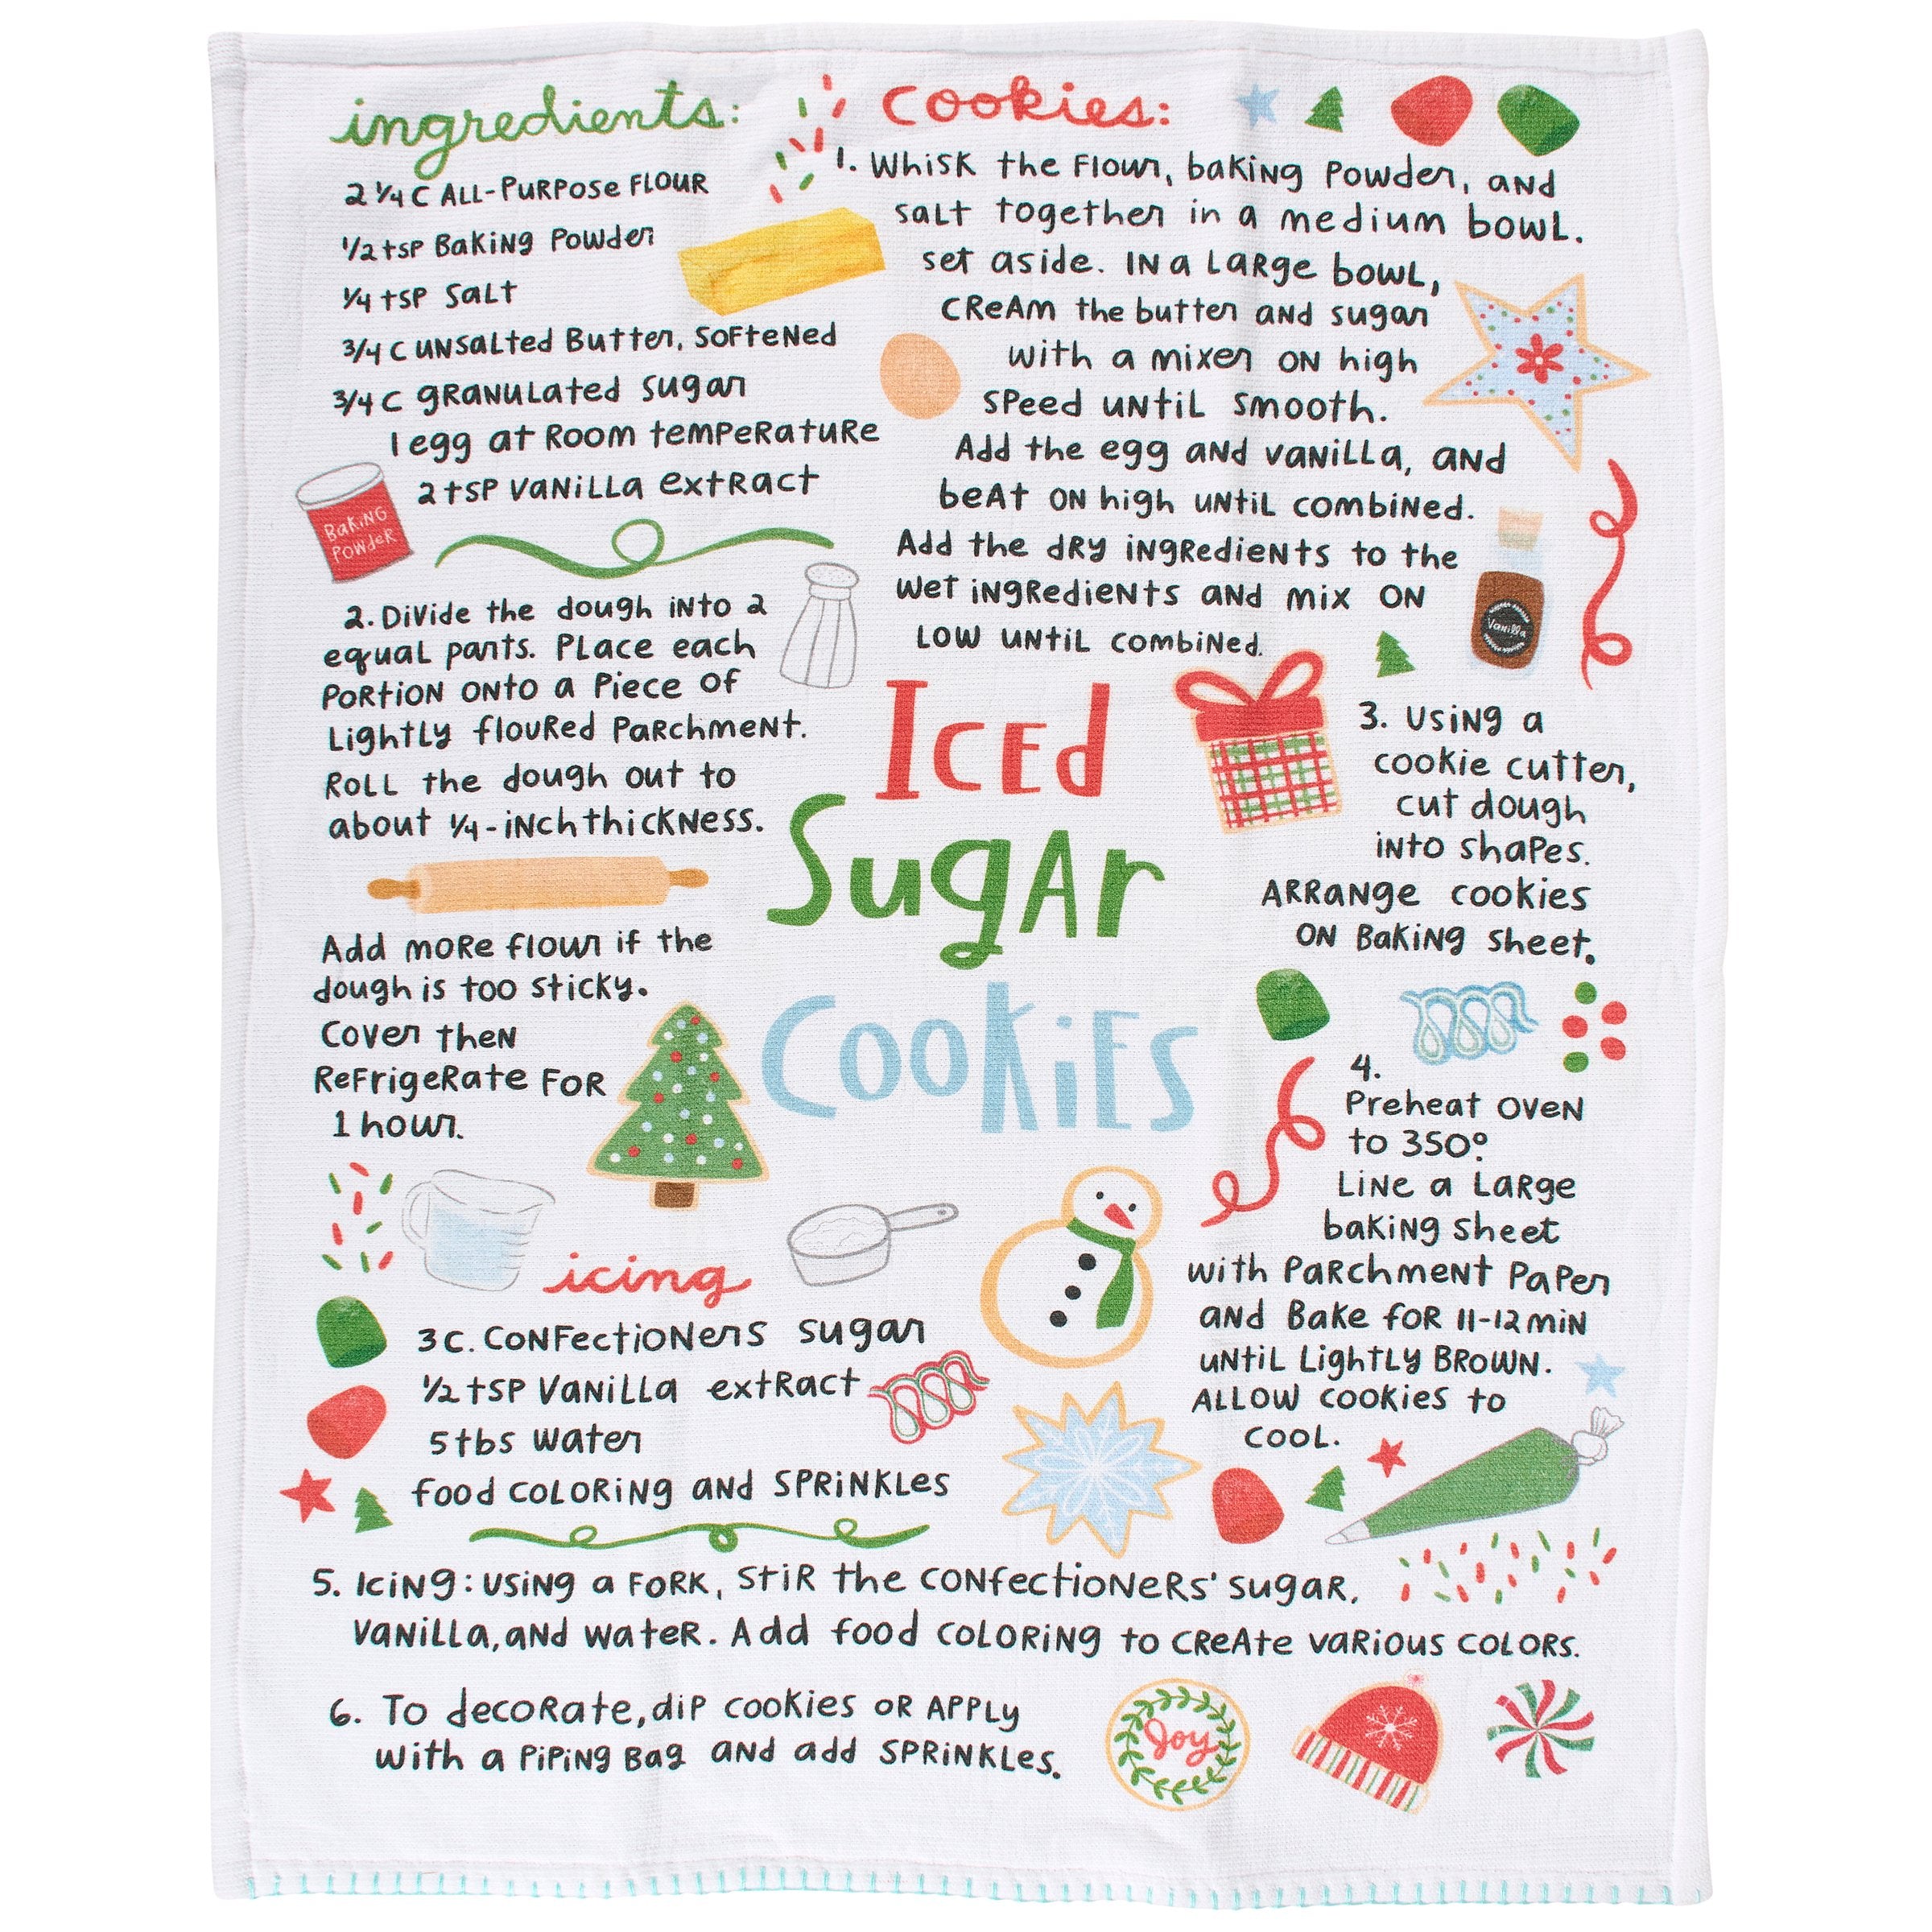 ingredients:
2 1/4 C ALL-PURPOSE FLOUR
1/2 tsp Baking Powder
1/4 tsp Salt
3/4 C unsalted Butter, Softened
3/4 C granulated sugar
1 egg at room temperature
2 tsp vanilla extract
Baking
Powder
cookies:
1. Whisk the flour, baking powder, and
salt together in a medium bowl.
set aside. In a large bowl,
cream the butter and sugar
with a mixer on high
speed until smooth.
Add the egg and vanilla, and
beat on high until combined.
Add the dry ingredients to the
wet ingredients and mix on
low until combined.
Vanilla
2. Divide the dough into 2
equal parts. Place each
portion onto a piece of
lightly floured parchment.
Roll the dough out to
about 1/4-inch thickness.
Add more flour if the
dough is too sticky.
Cover then
refrigerate for
1 hour.
Iced
Sugar
Cookies
3. Using a
cookie cutter,
cut dough
into shapes.
Arrange cookies
on baking sheet.
4.
Preheat oven
to 350°.
Line a large
baking sheet
with parchment paper
and bake for 11-12 min
until lightly brown.
Allow cookies to
cool.
icing
3 C. Confectioners sugar
1/2 tsp vanilla extract
5 tbs water
food coloring and sprinkles
5. Icing: Using a fork, stir the confectioners' sugar,
vanilla, and water. Add food coloring to create various colors.
6. To decorate, dip cookies or apply
with a piping bag and add sprinkles.
Joy